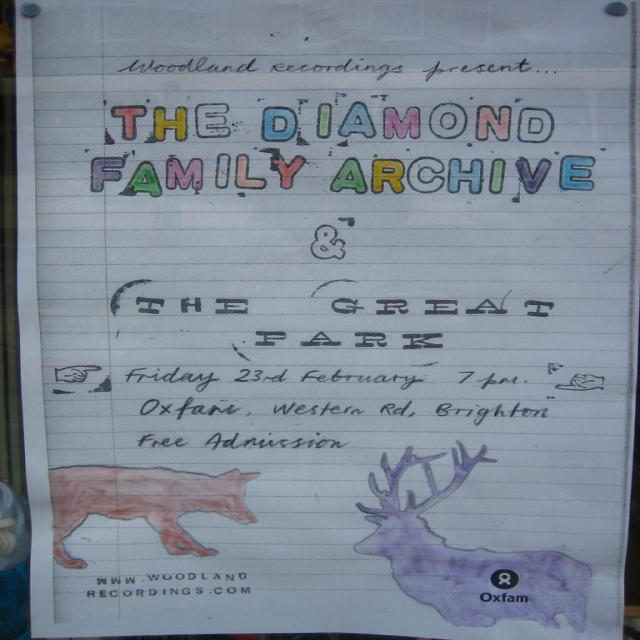 Woodland Recordings present...
THE DIAMOND
FAMILY ARCHIVE
&
THE GREAT
PARK
Friday 23rd February 7 pm.
Oxfam, Western Rd, Brighton
Free Admission
WWW.WOODLAND
RECORDINGS.COM
Oxfam